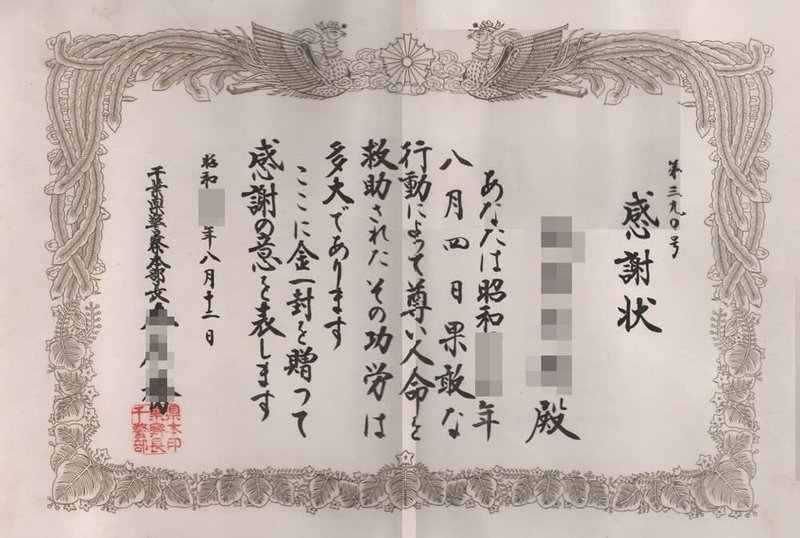 第三九〇号
感謝状
殿
あなたは昭和 年
八月四日果敢な
行動によって尊い人命を
救助されたその功労は
多大であります
ここに金一封を贈って
感謝の意を表します
昭和 年八月十二日
千葉県警察本部長
千葉県警察本部長印